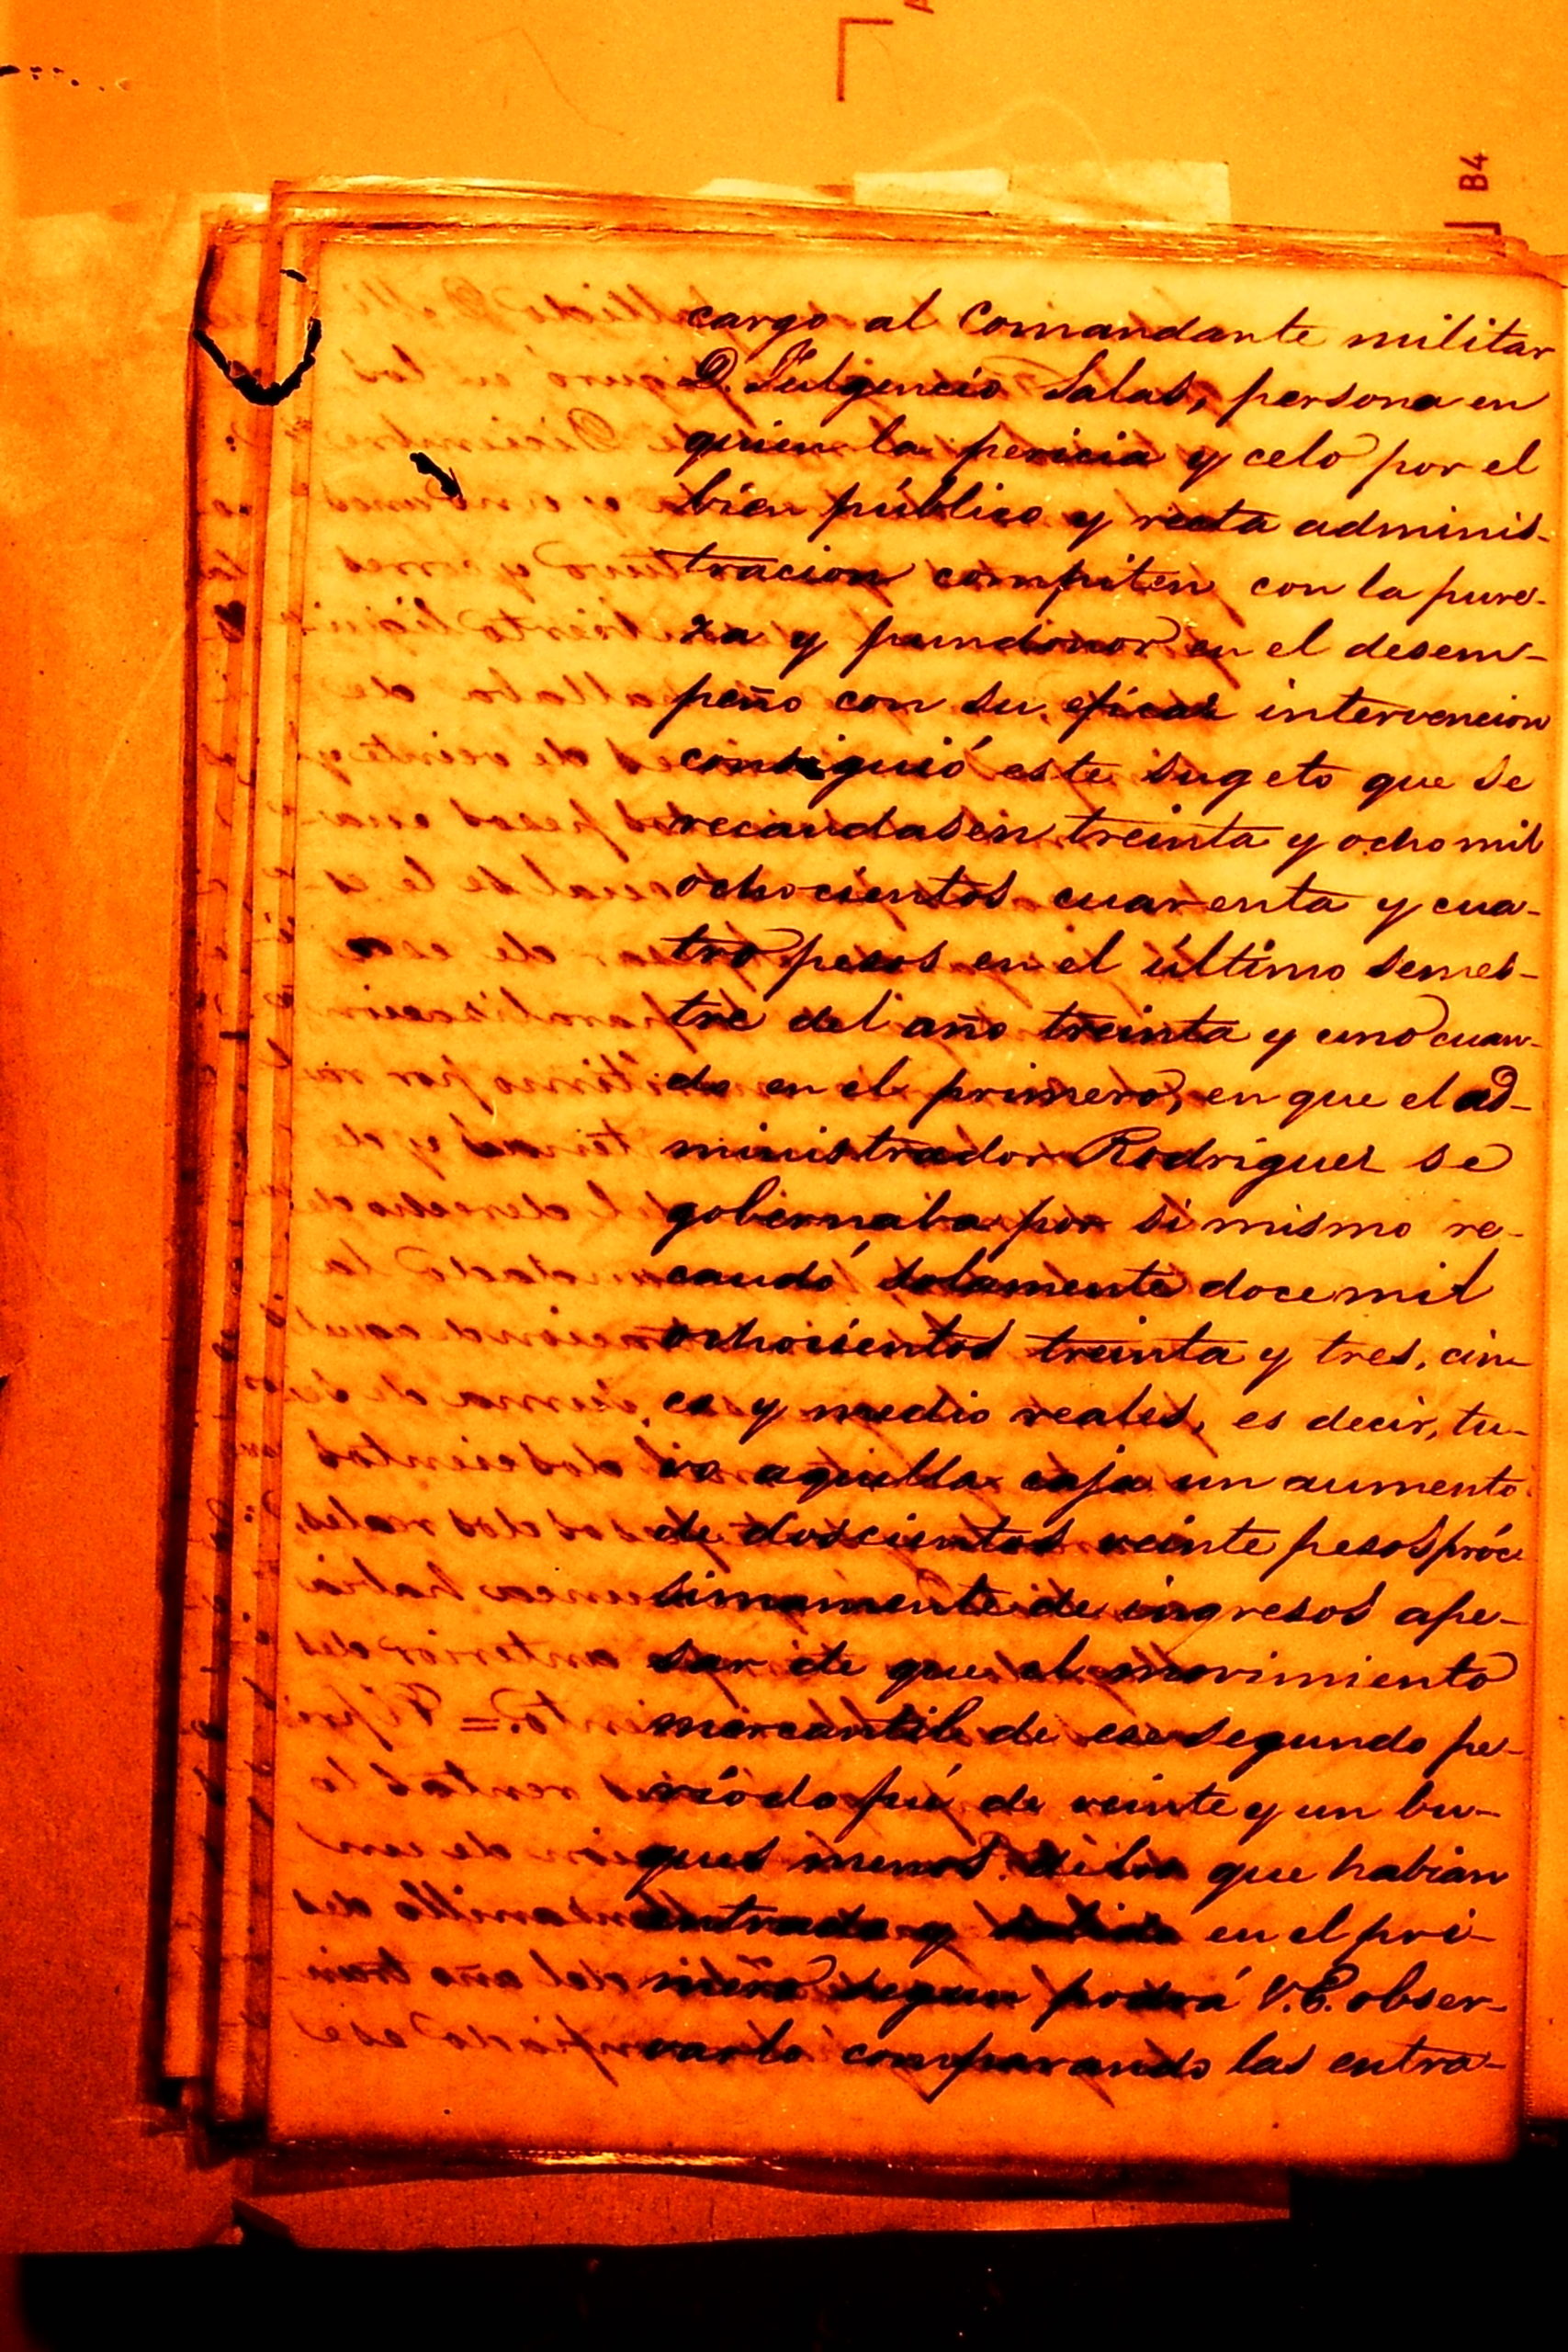 B4
cargo al Comandante militar
D. Fulgencio Salas, persona en
quien la pericia y celo por el
bien público y recta adminis-
tracion compiten con la pure-
za y pundonor en el desem-
peño con su eficas intervencion
consiguió este sugeto que se
recaudasen treinta y ocho mil
ochocientos cuarenta y cua-
tro pesos en el último semes-
tre del año treinta y uno cuan-
do en el primero, en que el ad-
ministrador Rodriguez se
gobernaba por si mismo re-
caudó solamente doce mil
ochocientos treinta y tres, cin-
co y medio reales, es decir, tu-
vo aquella caja un aumento
de doscientos veinte pesos próc
simamente de ingresos ape-
sar de que el movimiento
mercantil de ese segundo pe-
ríodo fué de veinte y un bu-
ques menos que habian
entrado y salido en el pri-
mero segun podrá V.E. obser-
varlo comparando las entra-